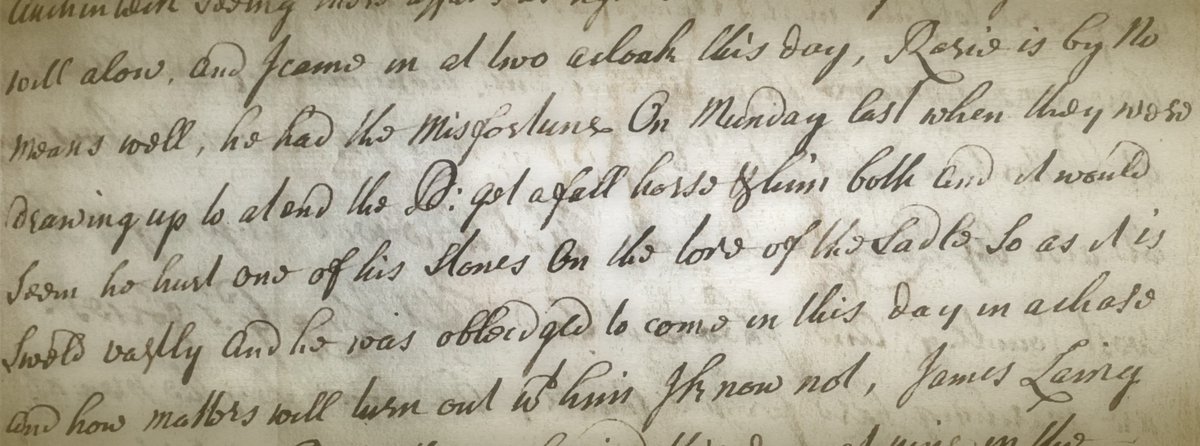 seeing
will alow, and I came in at two acloak this day, Rosie is by No
means well, he had the Misfortune On Munday last when they were
drawing up to atend the D: get a fall horse & him both and it would
Seem he hurt one of his Stones On the tore of the Sadle So as it is
Sweld vastly And he was obleidged to come in this day in a chase
and how matters will turn out wt him I know not, James Laing
in the